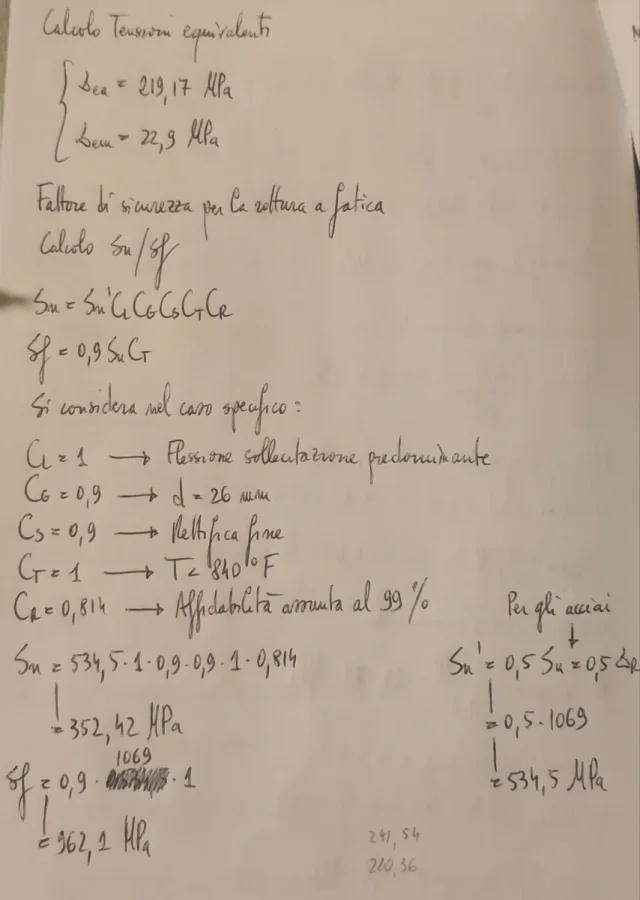 Calcolo Tensioni equivalenti
σea = 219,17 MPa
σem = 22,9 MPa
Fattore di sicurezza per la rottura a fatica
Calcolo Sn/Sf
Sn = Sn' CL CG CS CT CR
Sf = 0,9 Su CT
Si considera nel caso specifico:
CL = 1 → Flessione sollecitazione predominante
CG = 0,9 → d = 26 mm
CS = 0,9 → Rettifica fine
CT = 1 → T < 840 °F
CR = 0,814 → Affidabilità assunta al 99 %
Per gli acciai
↓
Sn = 534,5 · 1 · 0,9 · 0,9 · 1 · 0,814
Sn' = 0,5 Su = 0,5 σR
= 352,42 MPa
= 0,5 · 1069
1069
Sf = 0,9 · · 1
= 534,5 MPa
= 962,1 MPa
241,54
220,36